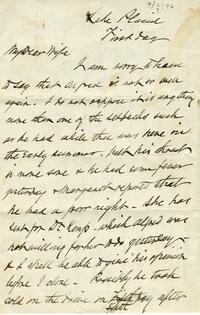 Lake Placid
First day
My Dear Wife
I am sorry to have
to say that Alfred is not so well
again. I do not suppose it is anything
more than one of the setbacks such
as he had while thee was here in
the early summer. but his throat
is more sore & he had some fever
yesterday & Margaret reports that
he had a poor night. She has
sent for Dr Kemp - which Alfred was
not willing for her to do yesterday -
& I shall be able to give his opinion
before I close. Possibly he took
cold on the drive on day after